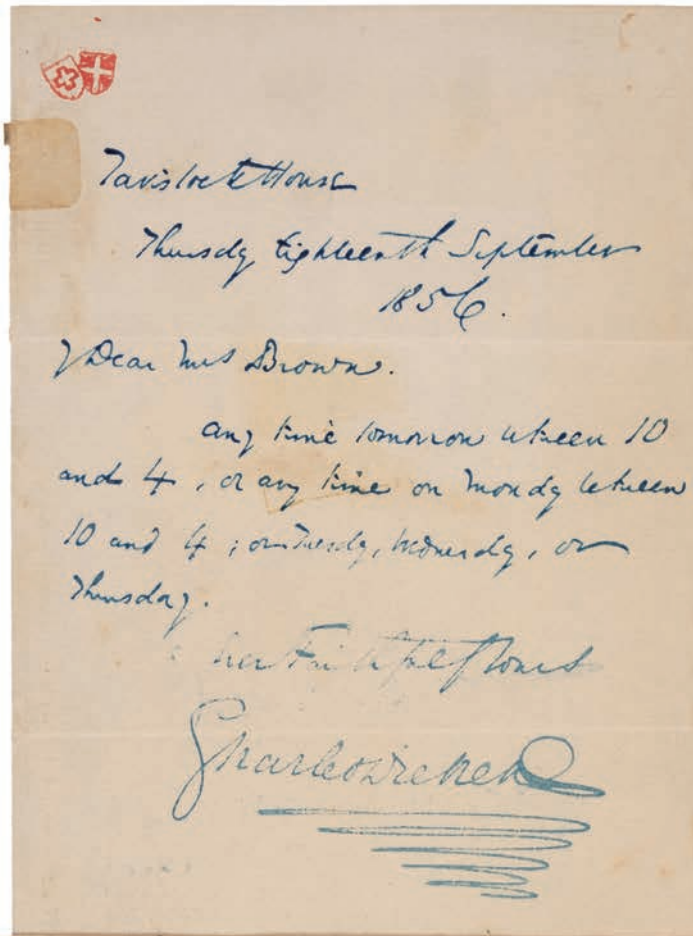 Tavistock House
Thursday Eighteenth September
1856.
Dear Mrs Brown.
any time tomorrow between 10
and 4, or any time on Monday between
10 and 4; or Tuesday, Wednesday, or
Thursday.
Faithfully Yours
Charles Dickens